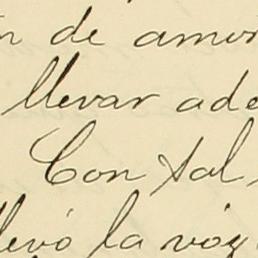 n de amor
llevar ade
Con tal
llevó la voz